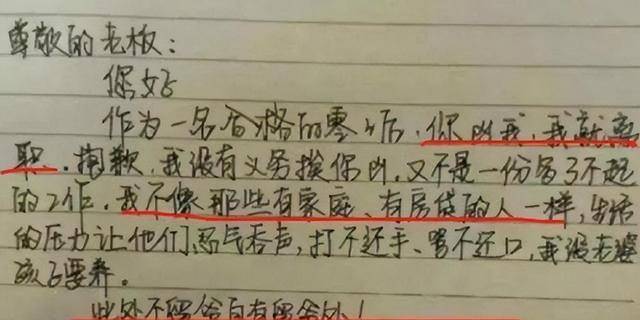 尊敬的老板：
你好
作为一名合格的零零后，你凶我，我就离
职。抱歉，我没有义务挨你凶，又不是一份多了不起
的工作，我不像那些有家庭、有房贷的人一样，生活
的压力让他们忍气吞声，打不还手、骂不还口，我没老婆
孩子要养。
此处不留爷自有留爷处！